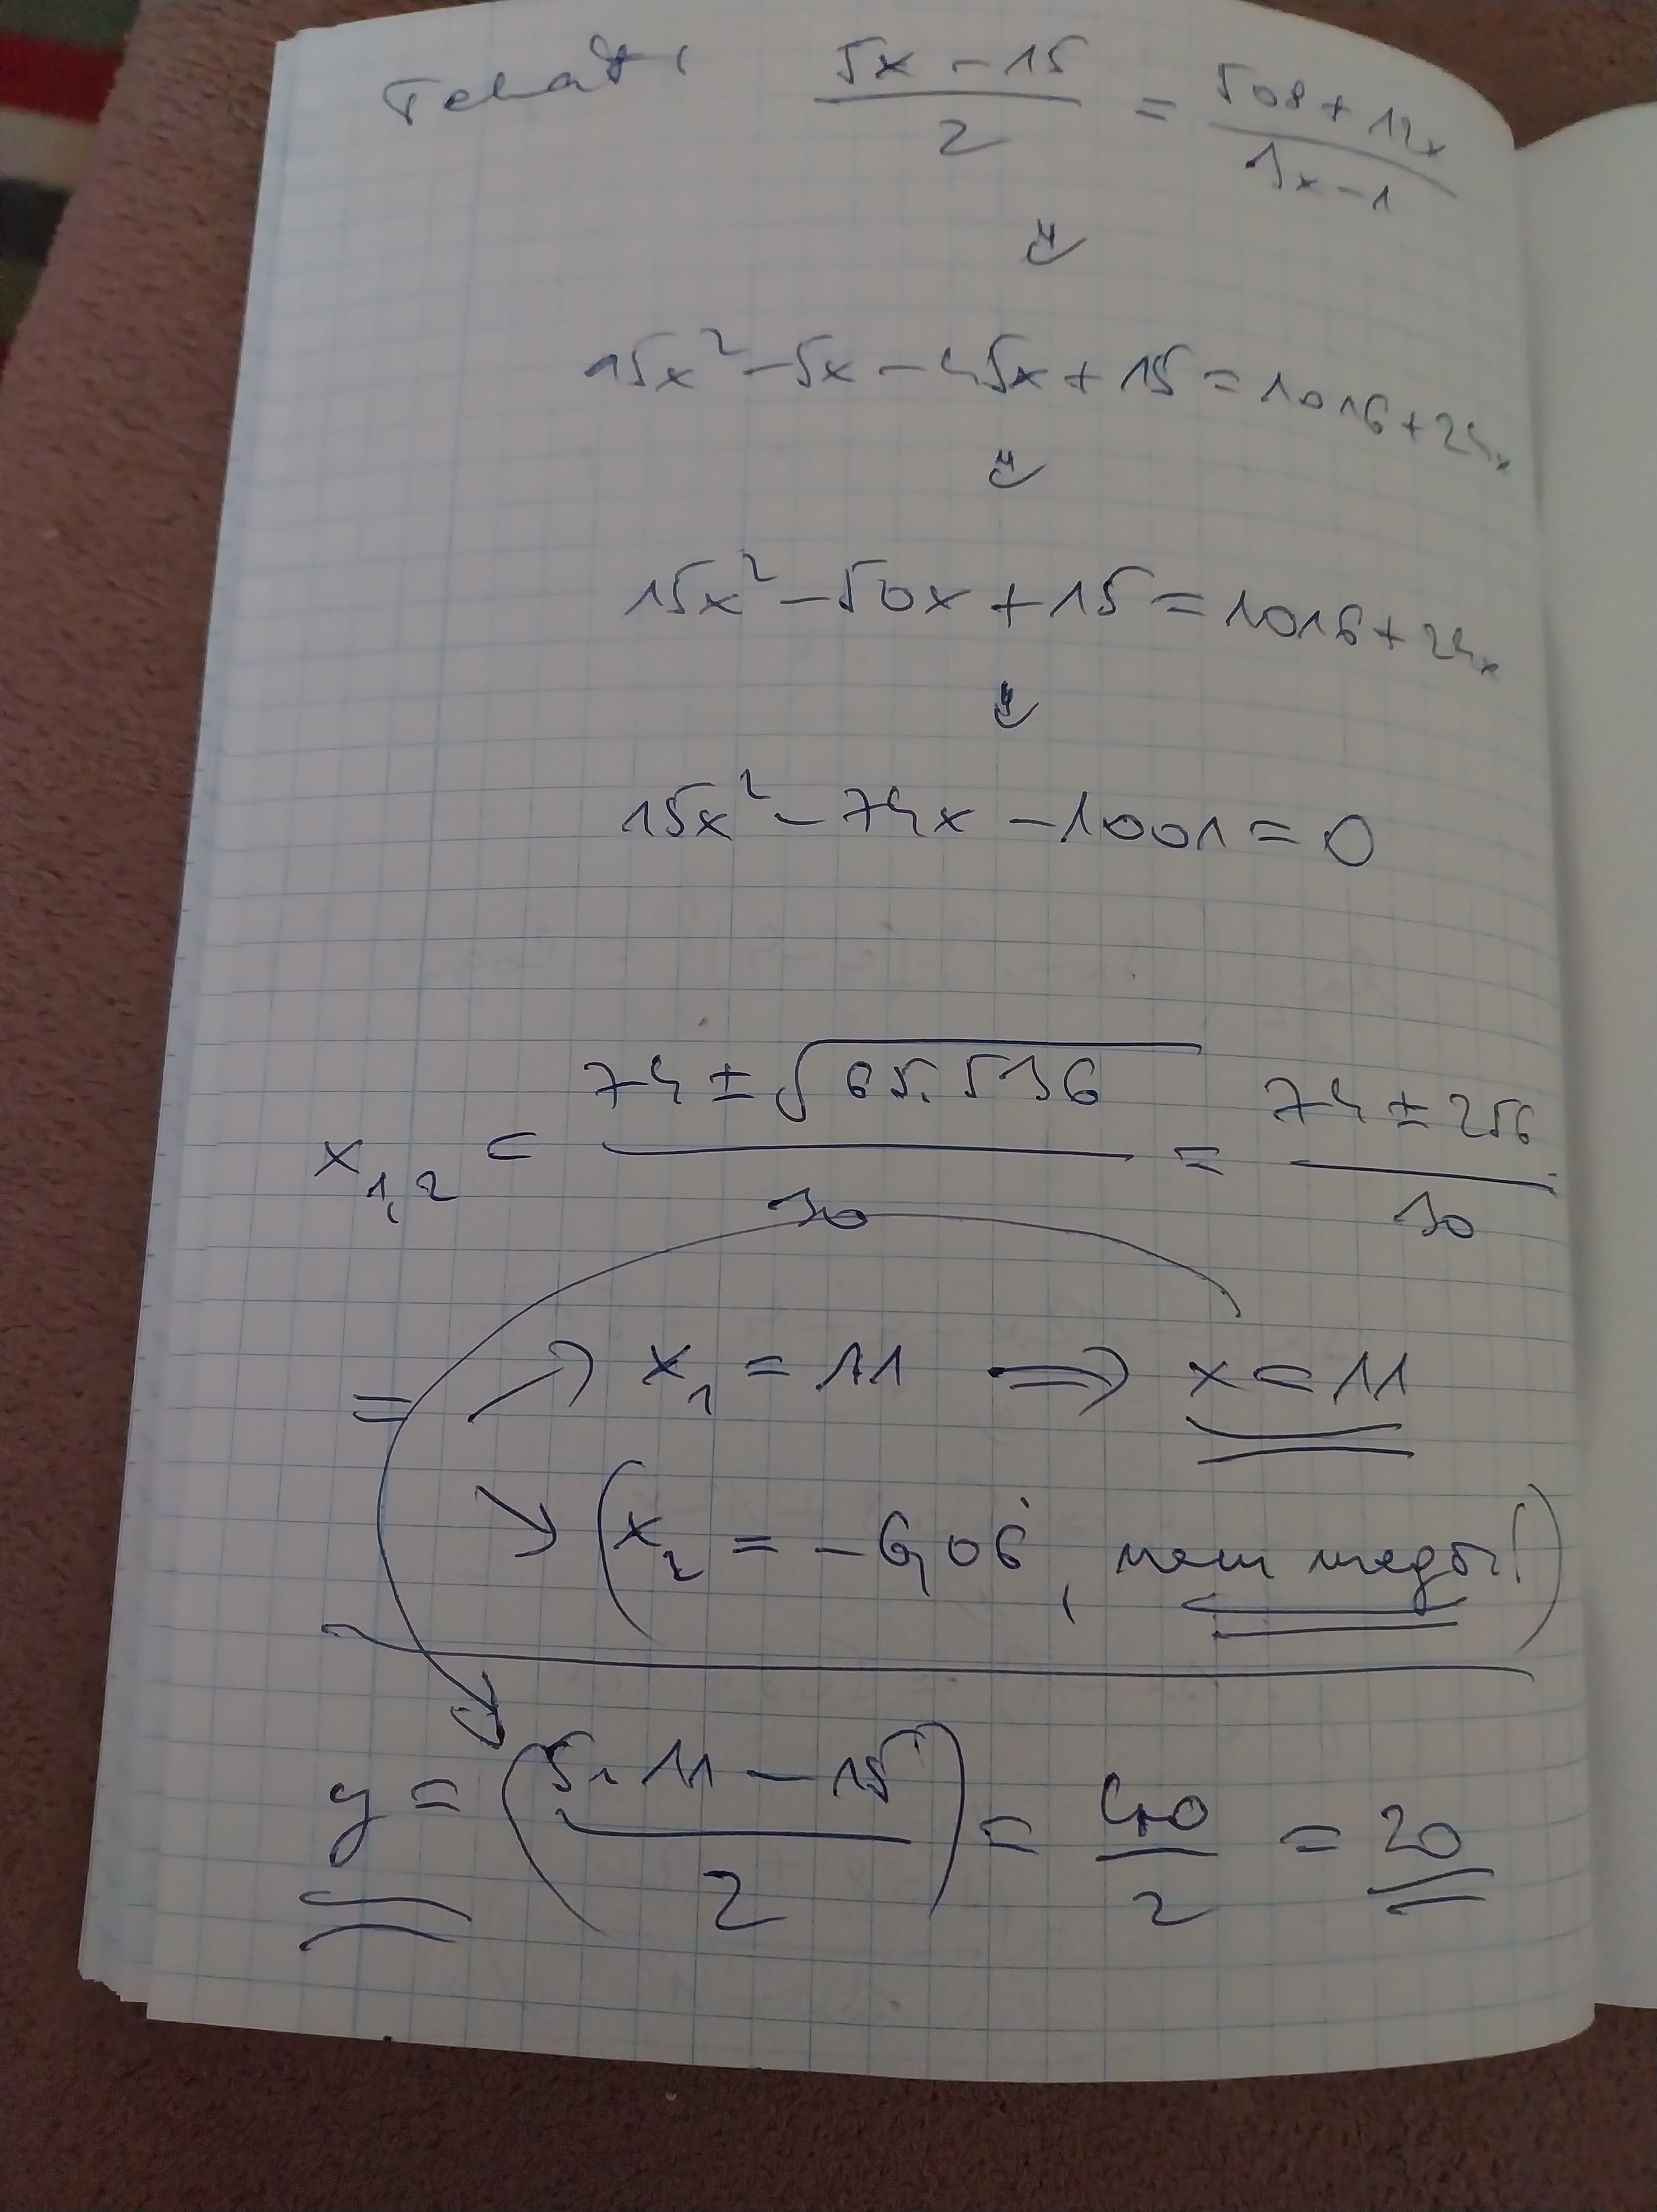 Tehát: (5x - 15)/2 = (508 + 12x)/(3x - 1)
⇓
15x² - 5x - 45x + 15 = 1016 + 24x
⇓
15x² - 50x + 15 = 1016 + 24x
⇓
15x² - 74x - 1001 = 0
x₁,₂ = (74 ± √65.536)/30 = (74 ± 256)/30
= ↗ x₁ = 11 ⇒ x = 11
↘ (x₂ = -6,06̇, nem mego.!)
y = ((5·11 - 15)/2) = 40/2 = 20